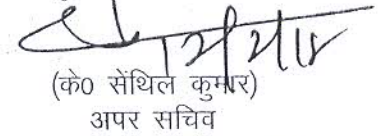 (के० सेंथिल कुमार)
अपर सचिव